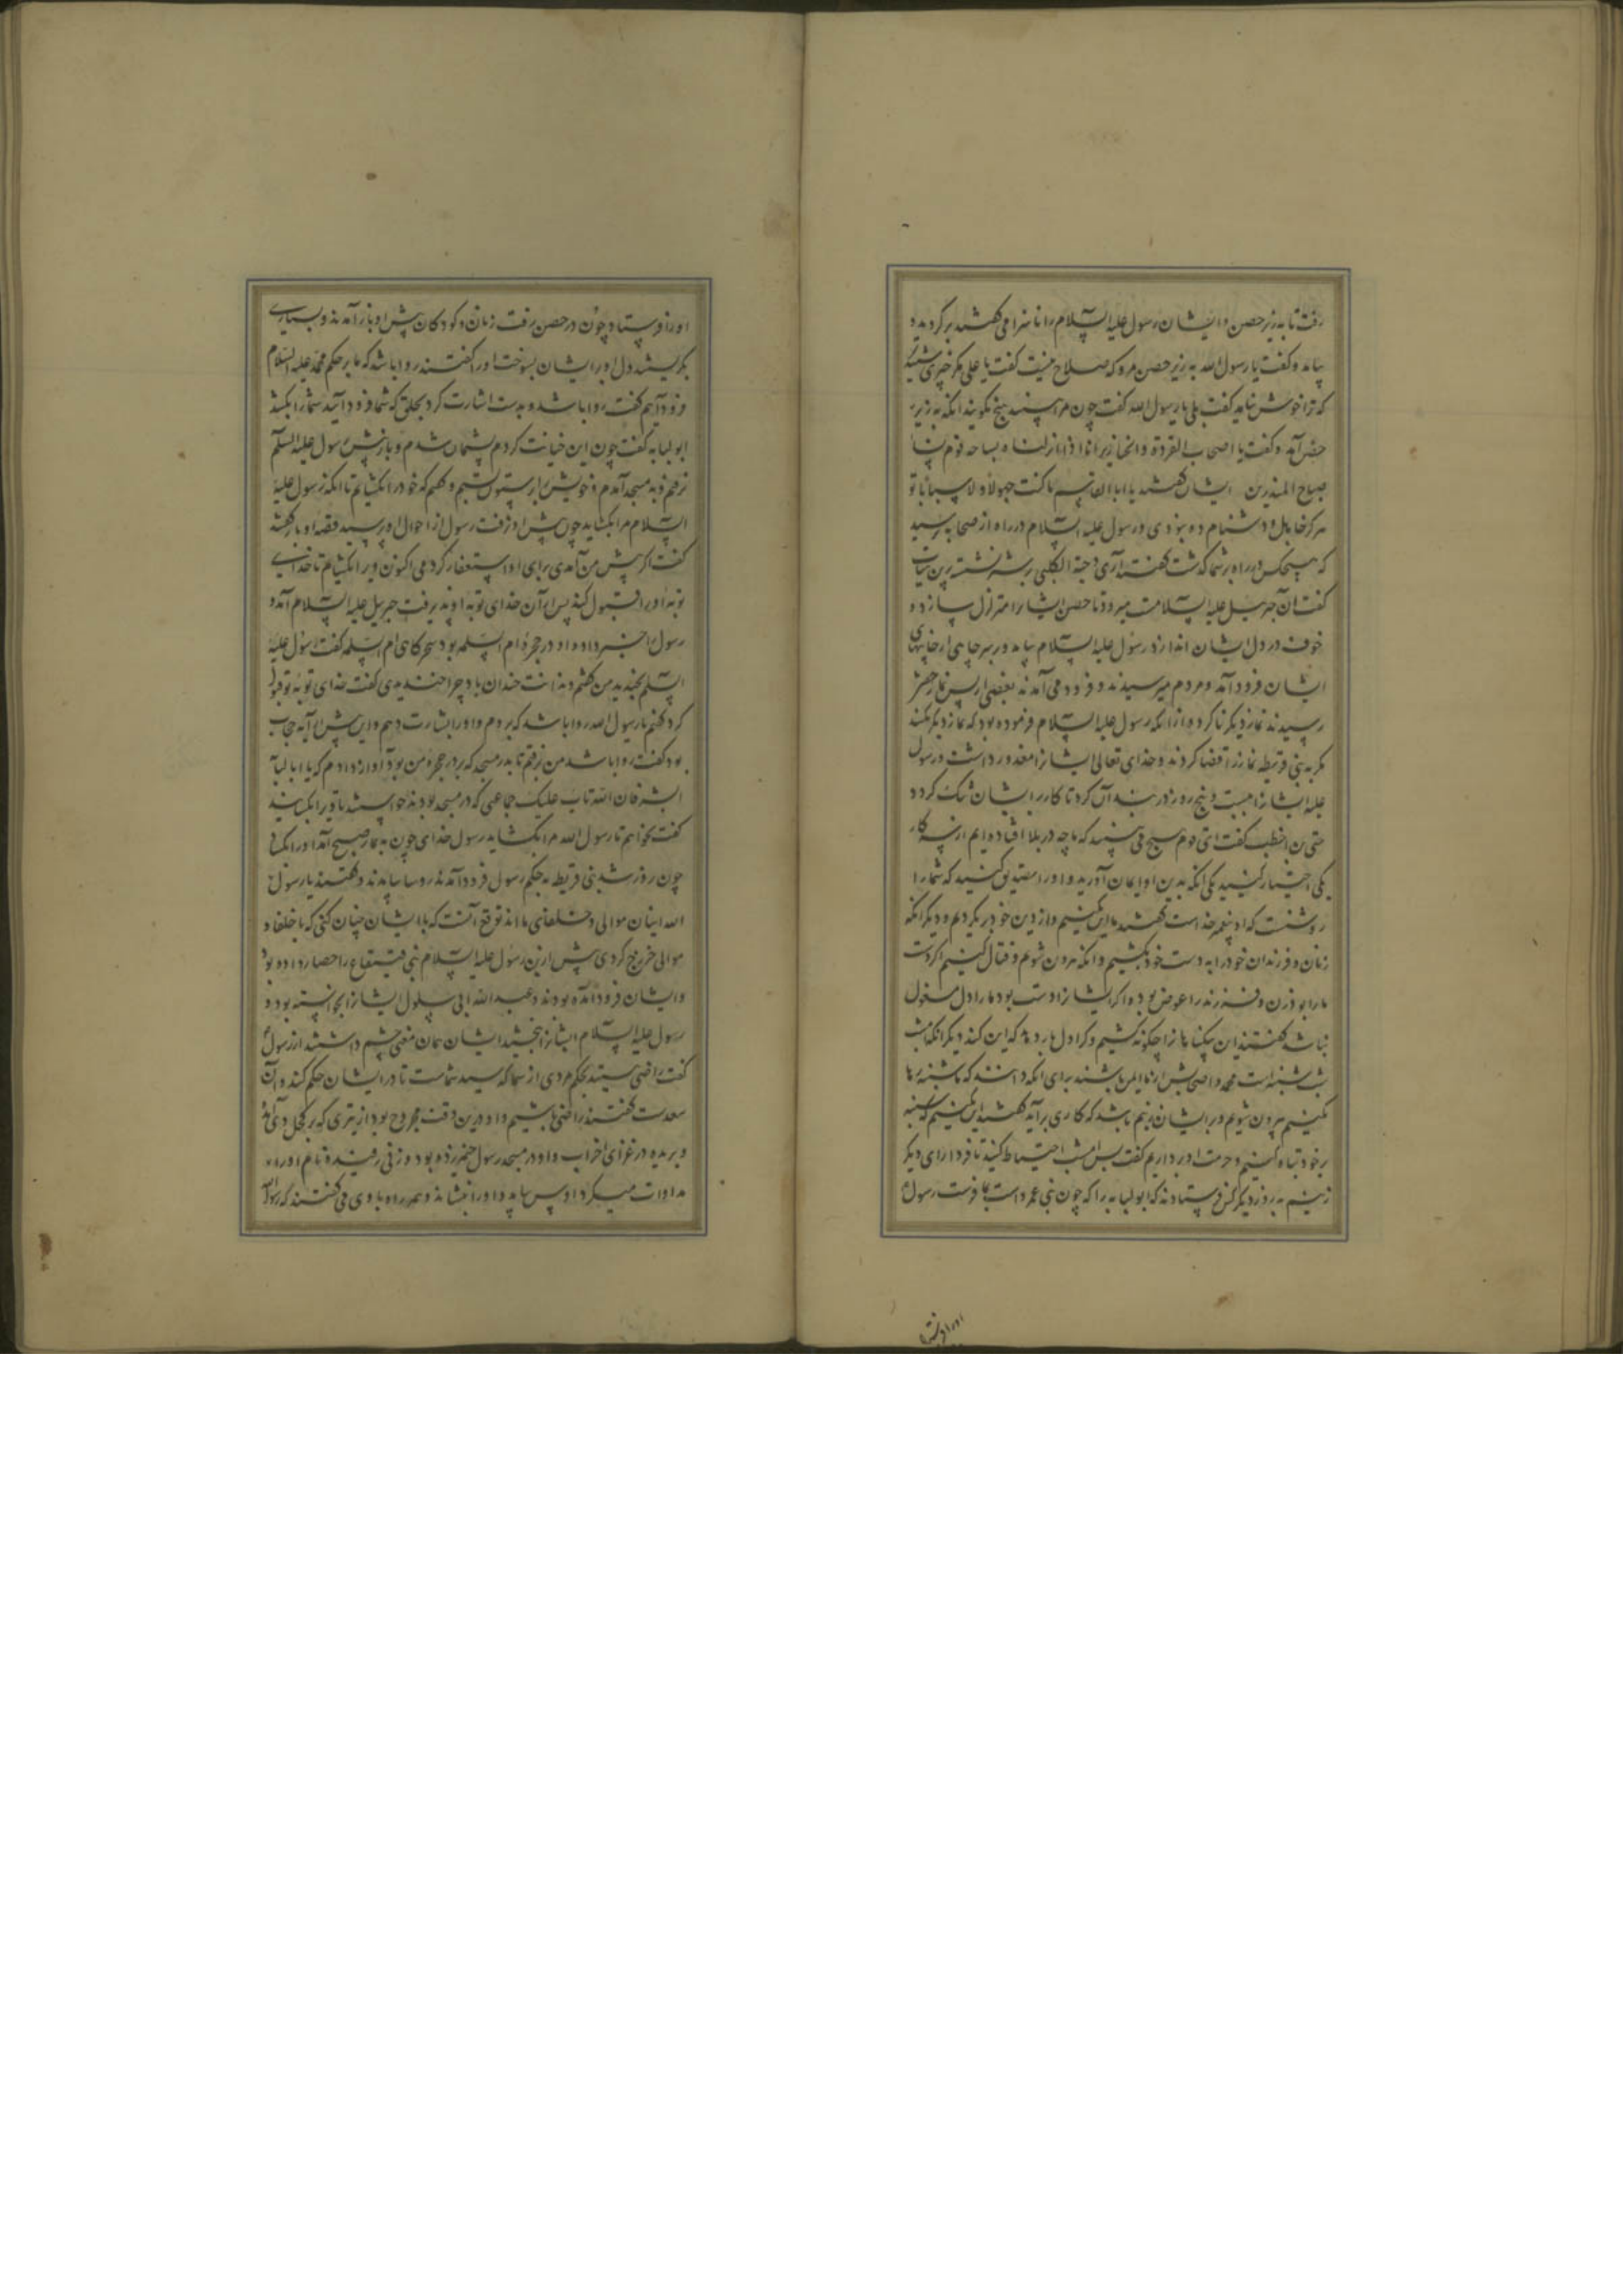 رفت تا به زیر حصن و ایشان رسول علیه السلام را ناسزا می گفتند برگردید و
بیامد و گفت یا رسول الله به زیر حصن مرو که صلاح نیست گفت یا علی مگر چیزی شنیدی
که ترا خوش نیاید گفت بلی یا رسول الله گفت چون مرا بینند هیچ نگویند آنکه به زیر
حصن آمد و گفت یا اصحاب القردة و الخنازیر انا اذا نزلنا بساحة قوم فساء
صباح المنذرین ایشان گفتند یا ابا القاسم ما کنت جهولا و لا سبابا تو
هرگز جاهل و دشنام ده نبودی و رسول علیه السلام در راه از صحابه پرسید
که هیچکس در راه بر شما گذشت گفتند آری دحیة الکلبی بر شتر نشسته
گفت آن جبرئیل علیه السلامت میرود تا حصن ایشان را متزلزل سازد و
خوف در دل ایشان اندازد رسول علیه السلام بیامد و بر سر چاهی از چاههای
ایشان فرود آمد و مردم میرسیدند و فرود می آمدند بعضی از پس نماز خفتن
رسیدند نماز دیگر ناکرده از آنکه رسول علیه السلام فرموده بود که نماز دیگر مکنید
مگر به بنی قریظه نماز را قضا کردند و خدای تعالی ایشانرا معذور داشت و رسول
علیه ایشانرا بیست و پنج روز در بندان کرد تا کار بر ایشان تنگ کرد و
حیی بن اخطب گفت ای قوم هیچ می بینید که ما چه در بلا افتاده ایم از سه کار
یکی اختیار کنید یکی آنکه بدین او ایمان آورید و او را تصدیق کنید که شما را
روشنست که او پیغمبر خداست گفتند ما این نکنیم و از دین خود برنگردیم و دیگر آنکه
زنان و فرزندان خود را به دست خود بکشیم و آنکه بیرون شویم و قتال کنیم اگر دست
ما را بود زن و فرزند را عوض بود و اگر ایشانرا دست بود ما را دل مشغول
نباشد گفتند این بیگناهانرا چگونه کشیم و کرا دل بار دهد که این کند دیگر آنکه امشب
شب شنبه است محمد و اصحابش از ما ایمن باشند برای آنکه دانند که ما شنبه رها
نکنیم بیرون شویم و بر ایشان زنیم باشد که کاری برآید گفتند این نکنیم که شنبه
بر خود تباه کنیم و حرمت او برداریم گفت پس امشب احتیاط کنید تا فردا رای دیگر
زنیم به روز دیگر کس فرستادند که ابو لبابه را که چون بنی عمرو است بما فرست رسول
او را فرستاد
او را فرستاد و چون در حصن رفت زنان و کودکان پیش او باز آمدند و بسیاری
بگریستند دل او بر ایشان بسوخت او را گفتند روا باشد که ما بر حکم محمد علیه السلام
فرود آییم گفت روا باشد و بدست اشارت کرد بحلق که شما فرود آیید شما را بکشد
ابو لبابه گفت چون این خیانت کردم پشیمان شدم و باز پیش رسول علیه السلم
نرفتم و به مسجد آمدم و خویش را بر ستون بستم و گفتم که خود را نگشایم تا آنکه رسول علیه
السلام مرا بگشاید چون پیش او نرفت رسول از احوال او پرسید قصه او باز گفتند
گفت اگر پیش من آمدی برای او استغفار کردمی اکنون ویرا نگشایم تا خدای
توبه او را قبول کند پس از آن خدای توبه او پذیرفت جبریل علیه السلام آمد و
رسول را خبر داد و او در حجره ام السلمه بود سحرگاهی ام السلمه گفت رسول علیه
السلم بخندید من گفتم دندانت خندان باد چرا خندیدی گفت خدای توبه بو لبابه قبول
کرد گفتم یا رسول الله روا باشد که بروم و او را بشارت دهم و این پیش از آیه حجاب
بود گفت روا باشد من برفتم تا بدر مسجد که بر در حجره من بود آواز دادم که یا ابا لبابه
ابشر فان الله تاب علیک جماعتی که در مسجد بودند خواستند تا ویرا بگشایند
گفت نخواهم تا رسول الله مرا بگشاید رسول خدای چون به نماز صبح آمد او را بگشاد
چون روز شد بنی قریظه به حکم رسول فرود آمدند روسا بیامدند و گفتند یا رسول
الله اینان موالی و خلفای ما اند توقع آنست که با ایشان چنان کنی که با خلفاء
موالی خزرج کردی پیش از این رسول علیه السلام بنی قینقاع را حصار داده بود
و ایشان فرود آمده بودند و عبد الله ابی سلول ایشانرا بخواسته بود و
رسول علیه السلام ایشانرا بخشید ایشان همان معنی چشم داشتند از رسول
گفت راضی هستید بحکم مردی از شما که سید شماست تا در ایشان حکم کند و آن
سعدست گفتند راضی باشیم و او درین وقت مجروح بود از تیری که بر کحل وی آمده
و بریده در غزای احزاب و او در مسجد رسول خیمه زده بود و زنی رفیده نام او را
مداوات میکرد او پس بیامد و او را بنشاند و همه راه با وی می گفتند که رسول الله